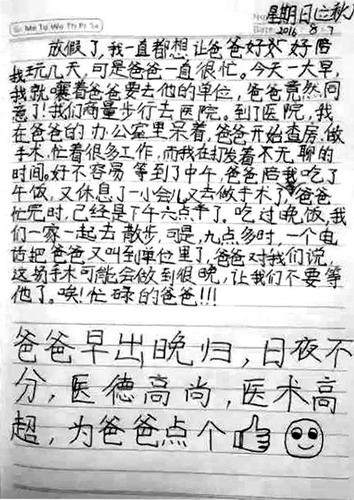 Mo Tu We Th Fr Sa
星期日(立秋)
Date 2016 8-7
放假了,我一直都想让爸爸好好陪
我玩几天,可是爸爸一直很忙。今天一大早,
我就嚷着爸爸要去他的单位,爸爸竟然同
意了!我们两量步行去医院。到了医院,我
在爸爸的办公室里呆着,爸爸开始查房,做
手术,忙着很多工作,而我在打发着不无聊的
时间。好不容易等到了中午,爸爸陪我吃了
午饭,又休息了一小会儿又去做手术了,爸爸
忙完时,已经是下午六点半了。吃过晚饭,我
们一家一起去散步,可是,九点多时,一个电
话把爸爸又叫到单位里了,爸爸对我们说,
这场手术可能会做到很晚,让我们不要等
他了。唉!忙碌的爸爸!!!
爸爸早出晚归,日夜不
分,医德高尚,医术高
超,为爸爸点个